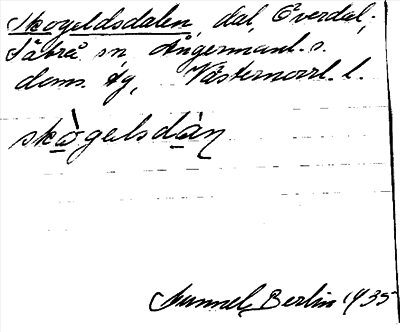 Skogeldsdalen, dal, Överdal,
Säbrå sn, Ångermanl. s.
doms. tg, Västernorrl. l.
skògelsdàn
Gunnel Berlin 1935